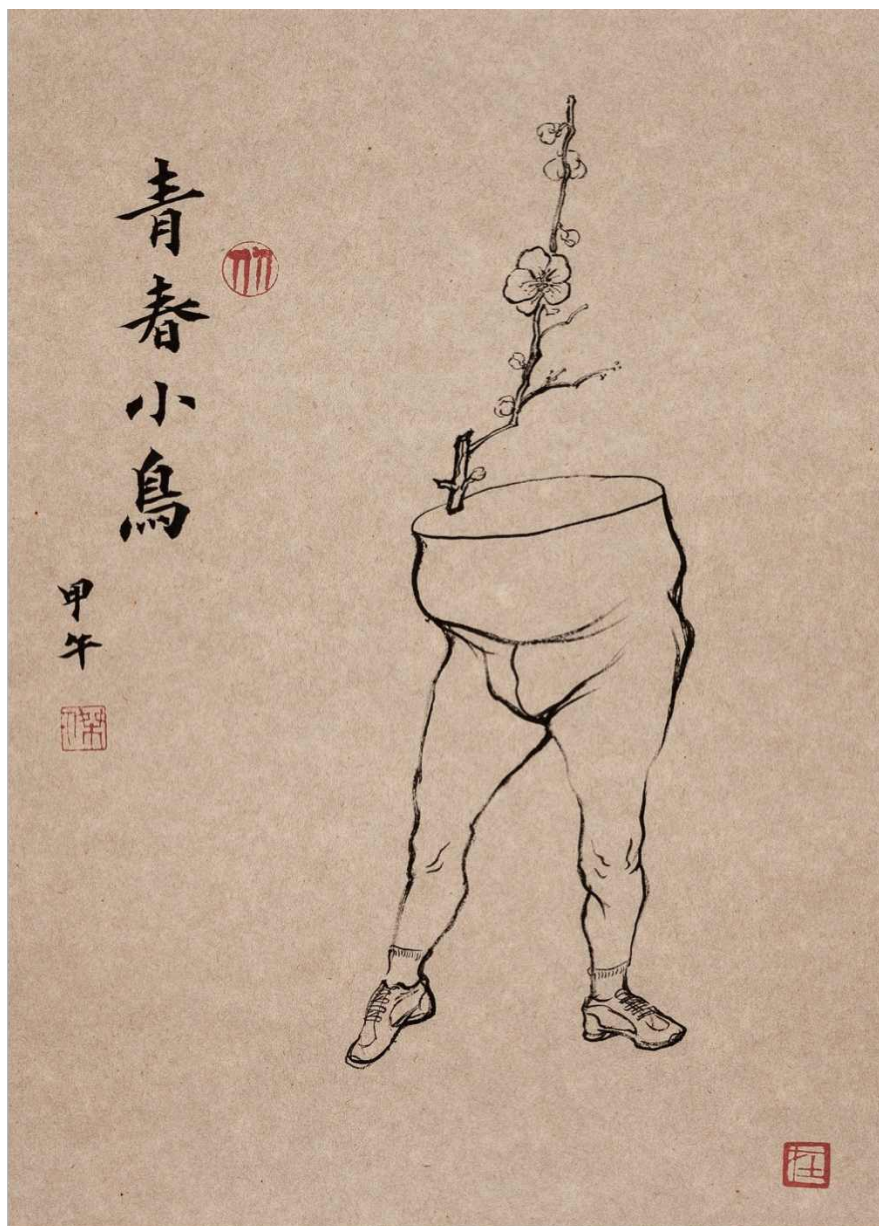 青春小鳥
甲午